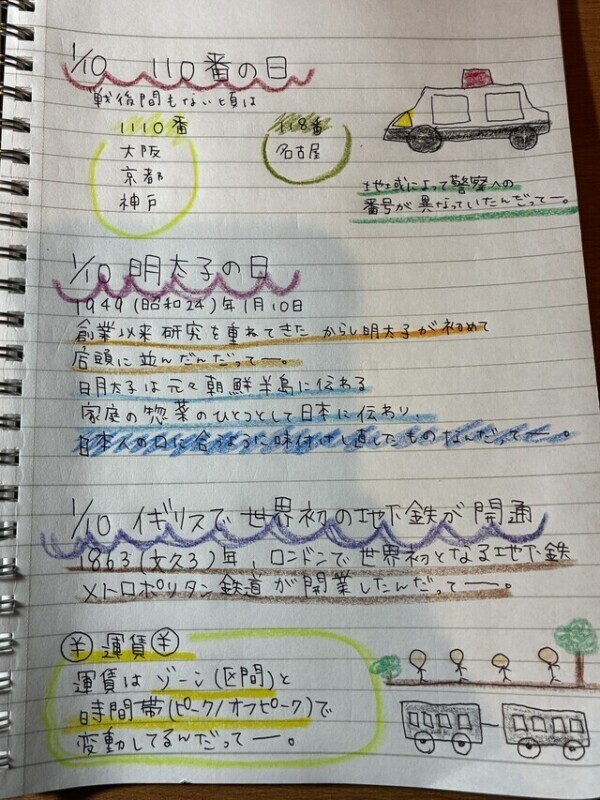 1/10 110番の日
戦後間もない頃は
1110番
大阪
京都
神戸
118番
名古屋
地域によって警察への
番号が異なっていたんだってー。
1/10 明太子の日
1949(昭和24)年1月10日
創業以来研究を重ねてきたからし明太子が初めて
店頭に並んだんだってー。
明太子は元々朝鮮半島に伝わる
家庭の惣菜のひとつとして日本に伝わり、
日本人の口に合うように味付けし直したものなんだってー。
1/10 イギリスで世界初の地下鉄が開通
1863(文久3)年、ロンドンで世界初となる地下鉄
メトロポリタン鉄道が開業したんだってー。
¥ 運賃 ¥
運賃はゾーン(区間)と
時間帯(ピーク/オフピーク)で
変動してるんだってー。